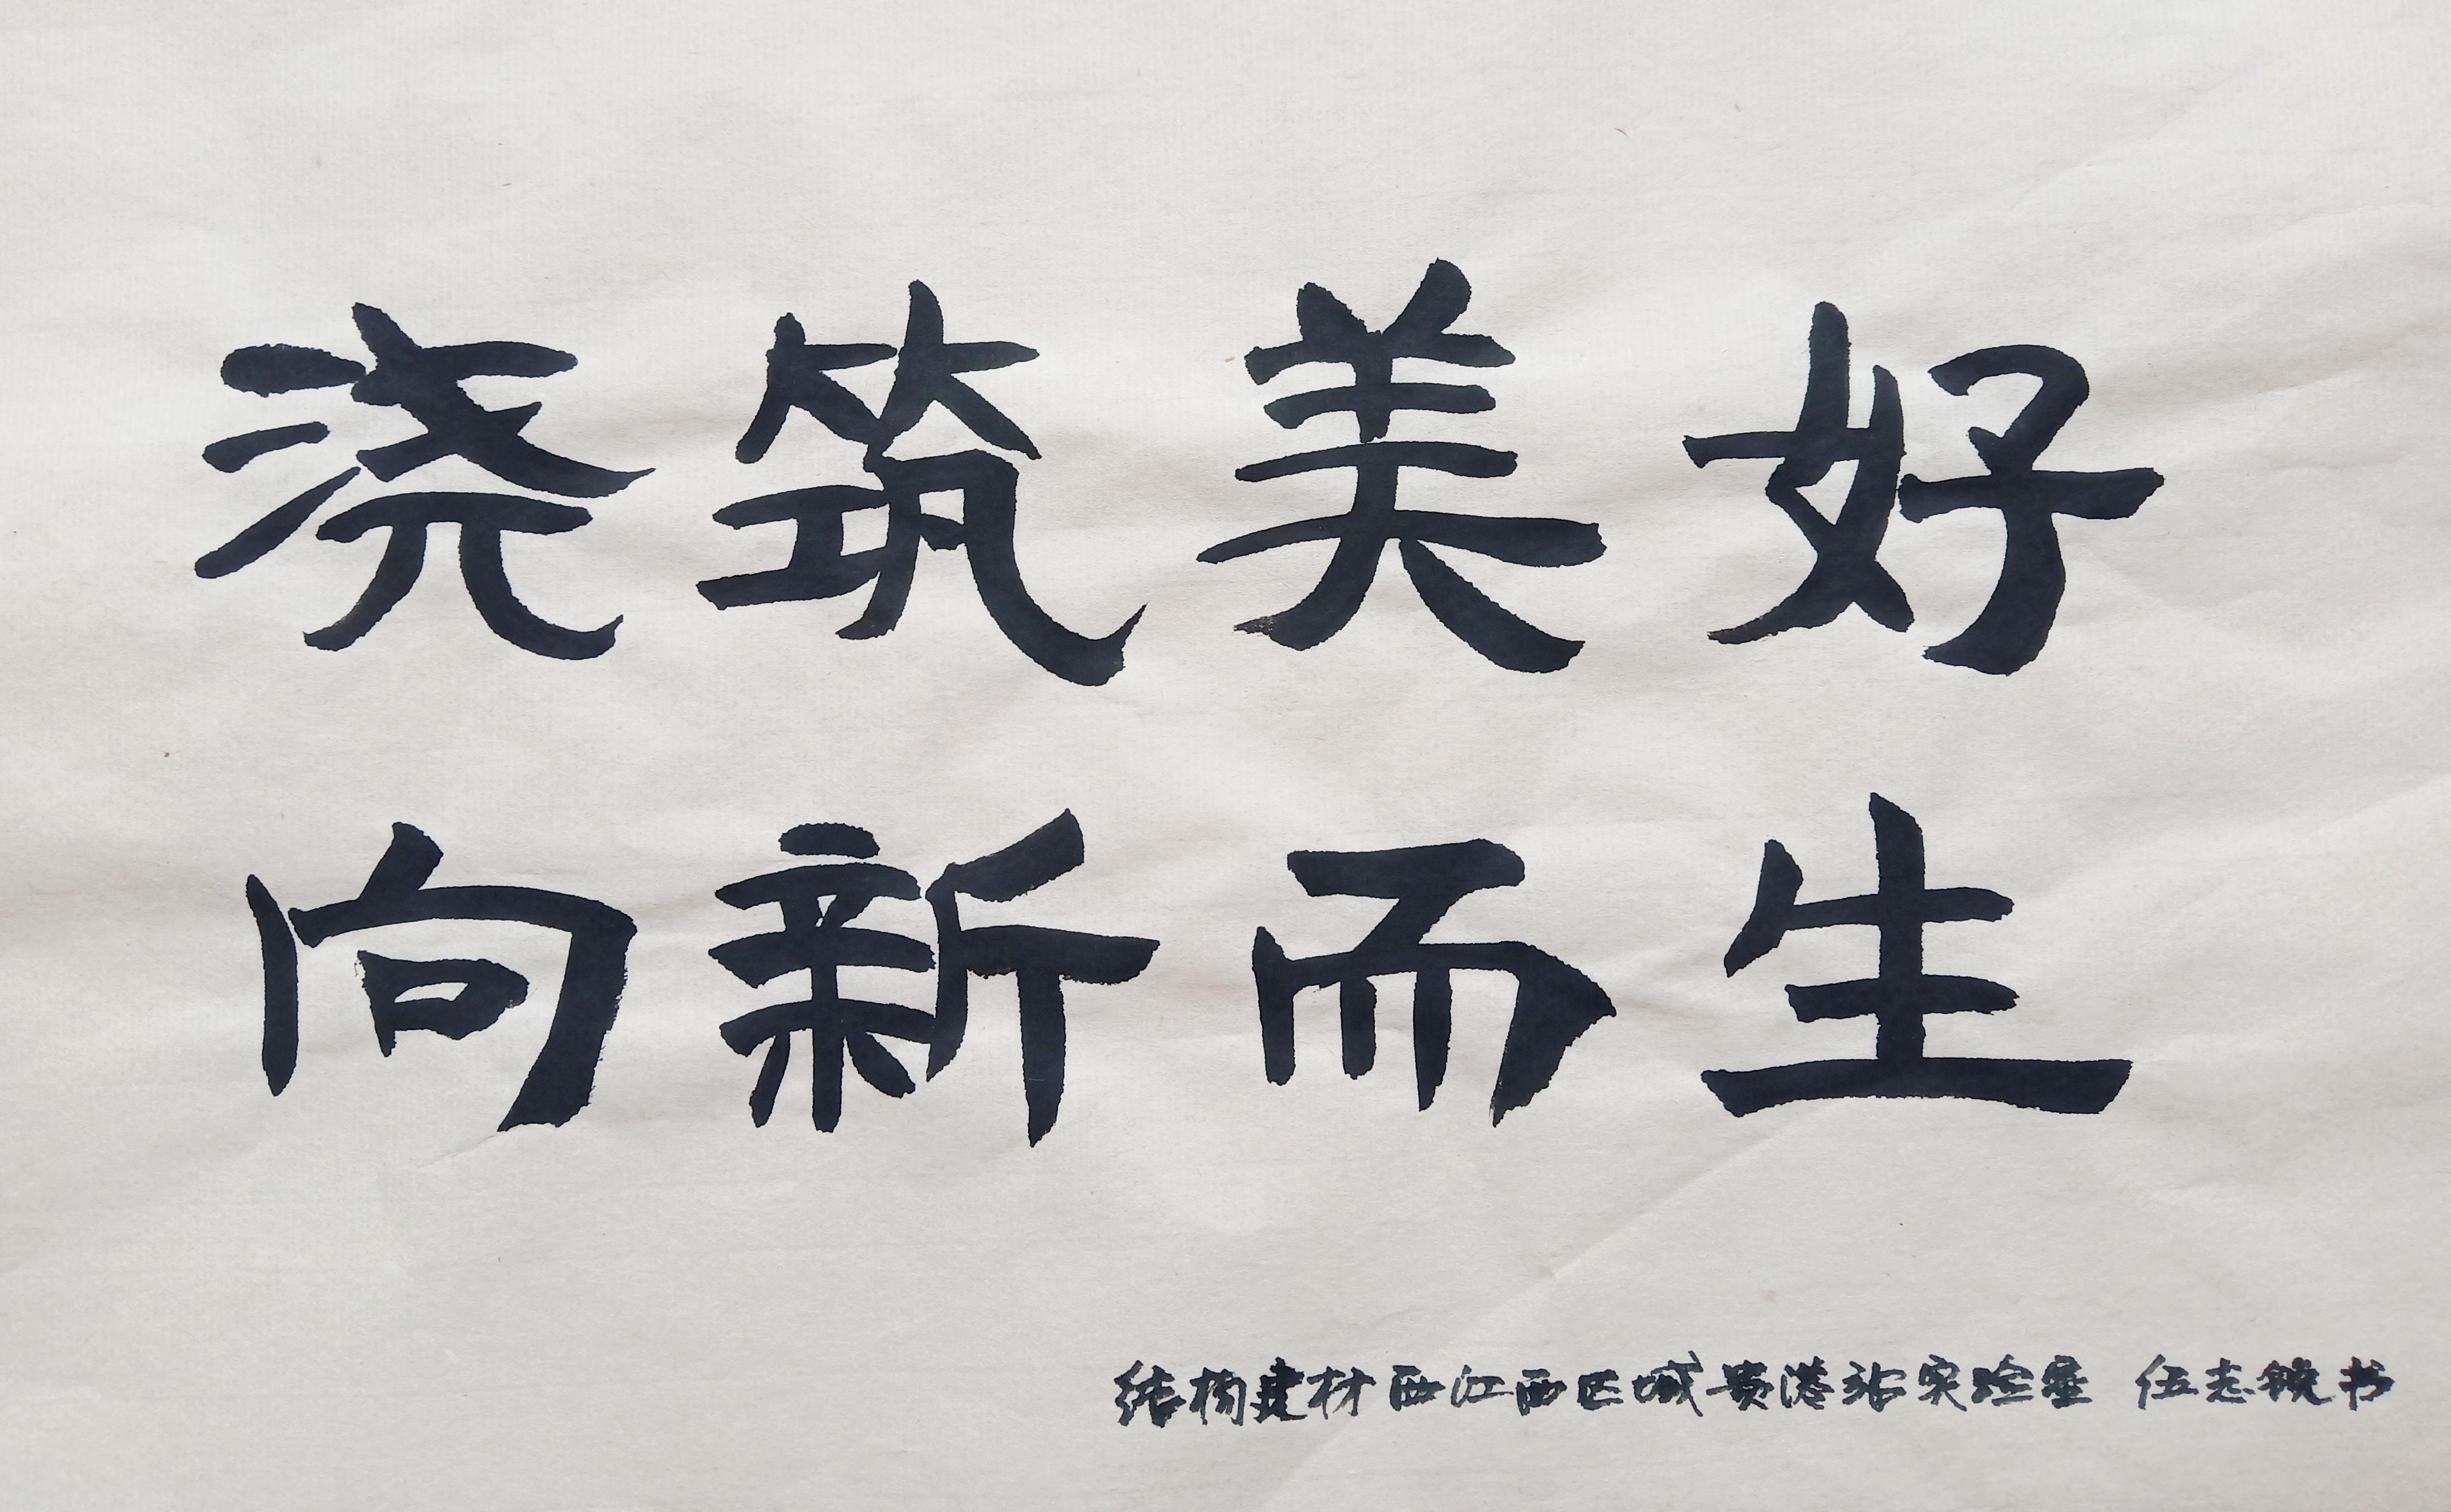 浇筑美好
向新而生
结构建材西江西区域贵港站实验室 伍志锐书